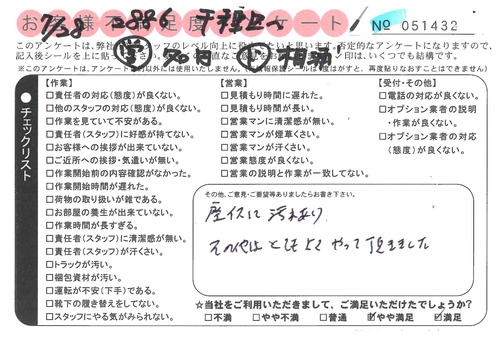 お客様不満足度アンケート
7/28
2886
No 051432
このアンケートは、弊社
スタッフのレベル向上に
否定的なアンケートになりますので、
記入後シールを上に貼
いくつでも結構です。
※このアンケートは、アンケート
以外には使用いたしません。
再度貼りなおすことはできません)
チェックリスト
【作業】
□責任者の対応(態度)が良くない。
□他のスタッフの対応(態度)が良くない。
□作業を見ていて不安がある。
□責任者(スタッフ)に好感が持てない。
□お客様への挨拶が出来ていない。
□ご近所への挨拶・気遣いが無い。
□作業開始前の内容確認がなかった。
□作業開始時間が遅れた。
□荷物の取り扱いが雑である。
□お部屋の養生が出来ていない。
□作業時間が長すぎる。
□責任者(スタッフ)に清潔感が無い。
□責任者(スタッフ)が汗くさい。
□トラックが汚い。
□梱包資材が汚い。
□運転が不安(下手)である。
□靴下の履き替えをしてない。
□スタッフにやる気がみられない。
【営業】
□見積もり時間に遅れた。
□見積もり時間が長い。
□営業マンに清潔感が無い。
□営業マンが煙草くさい。
□営業マンが汗くさい。
□営業態度が良くない。
□営業の説明と作業が一致してない。
【受付・その他】
□電話の対応が良くない。
□オプション業者の説明
・作業が良くない。
□オプション業者の対応
(態度)が良くない。
その他、ご意見・ご要望等ありましたらお書き下さい。
座イスに 汚れあり
その他は とても よく やって 頂きました
☆当社をご利用いただきまして、ご満足いただけたでしょうか?
□不満 □やや不満 □普通 ☑やや満足 ☑満足